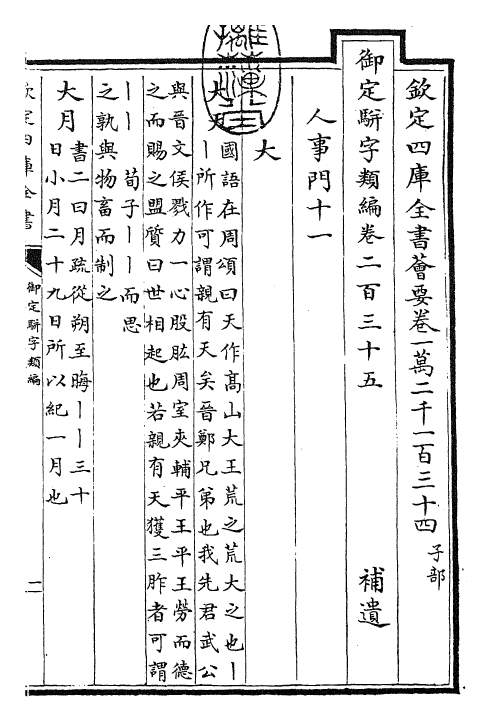 欽定四庫全書薈要卷一萬二千一百三十四 子部
御定駢字類編卷二百三十五 補遺
人事門十一
大
大天 國語在周頌曰天作髙山大王荒之荒大之也丨
丨所作可謂親有天矣晉鄭兄弟也我先君武公
與晉文侯戮力一心股肱周室夾輔平王平王勞而德
之而賜之盟質曰世相起也若親有天獲三胙者可謂
丨丨 荀子丨丨而思
之孰與物畜而制之
大月 書二曰月疏從朔至晦丨丨三十
日小月二十九日所以紀一月也
欽定四庫全書
御定駢字類編
二